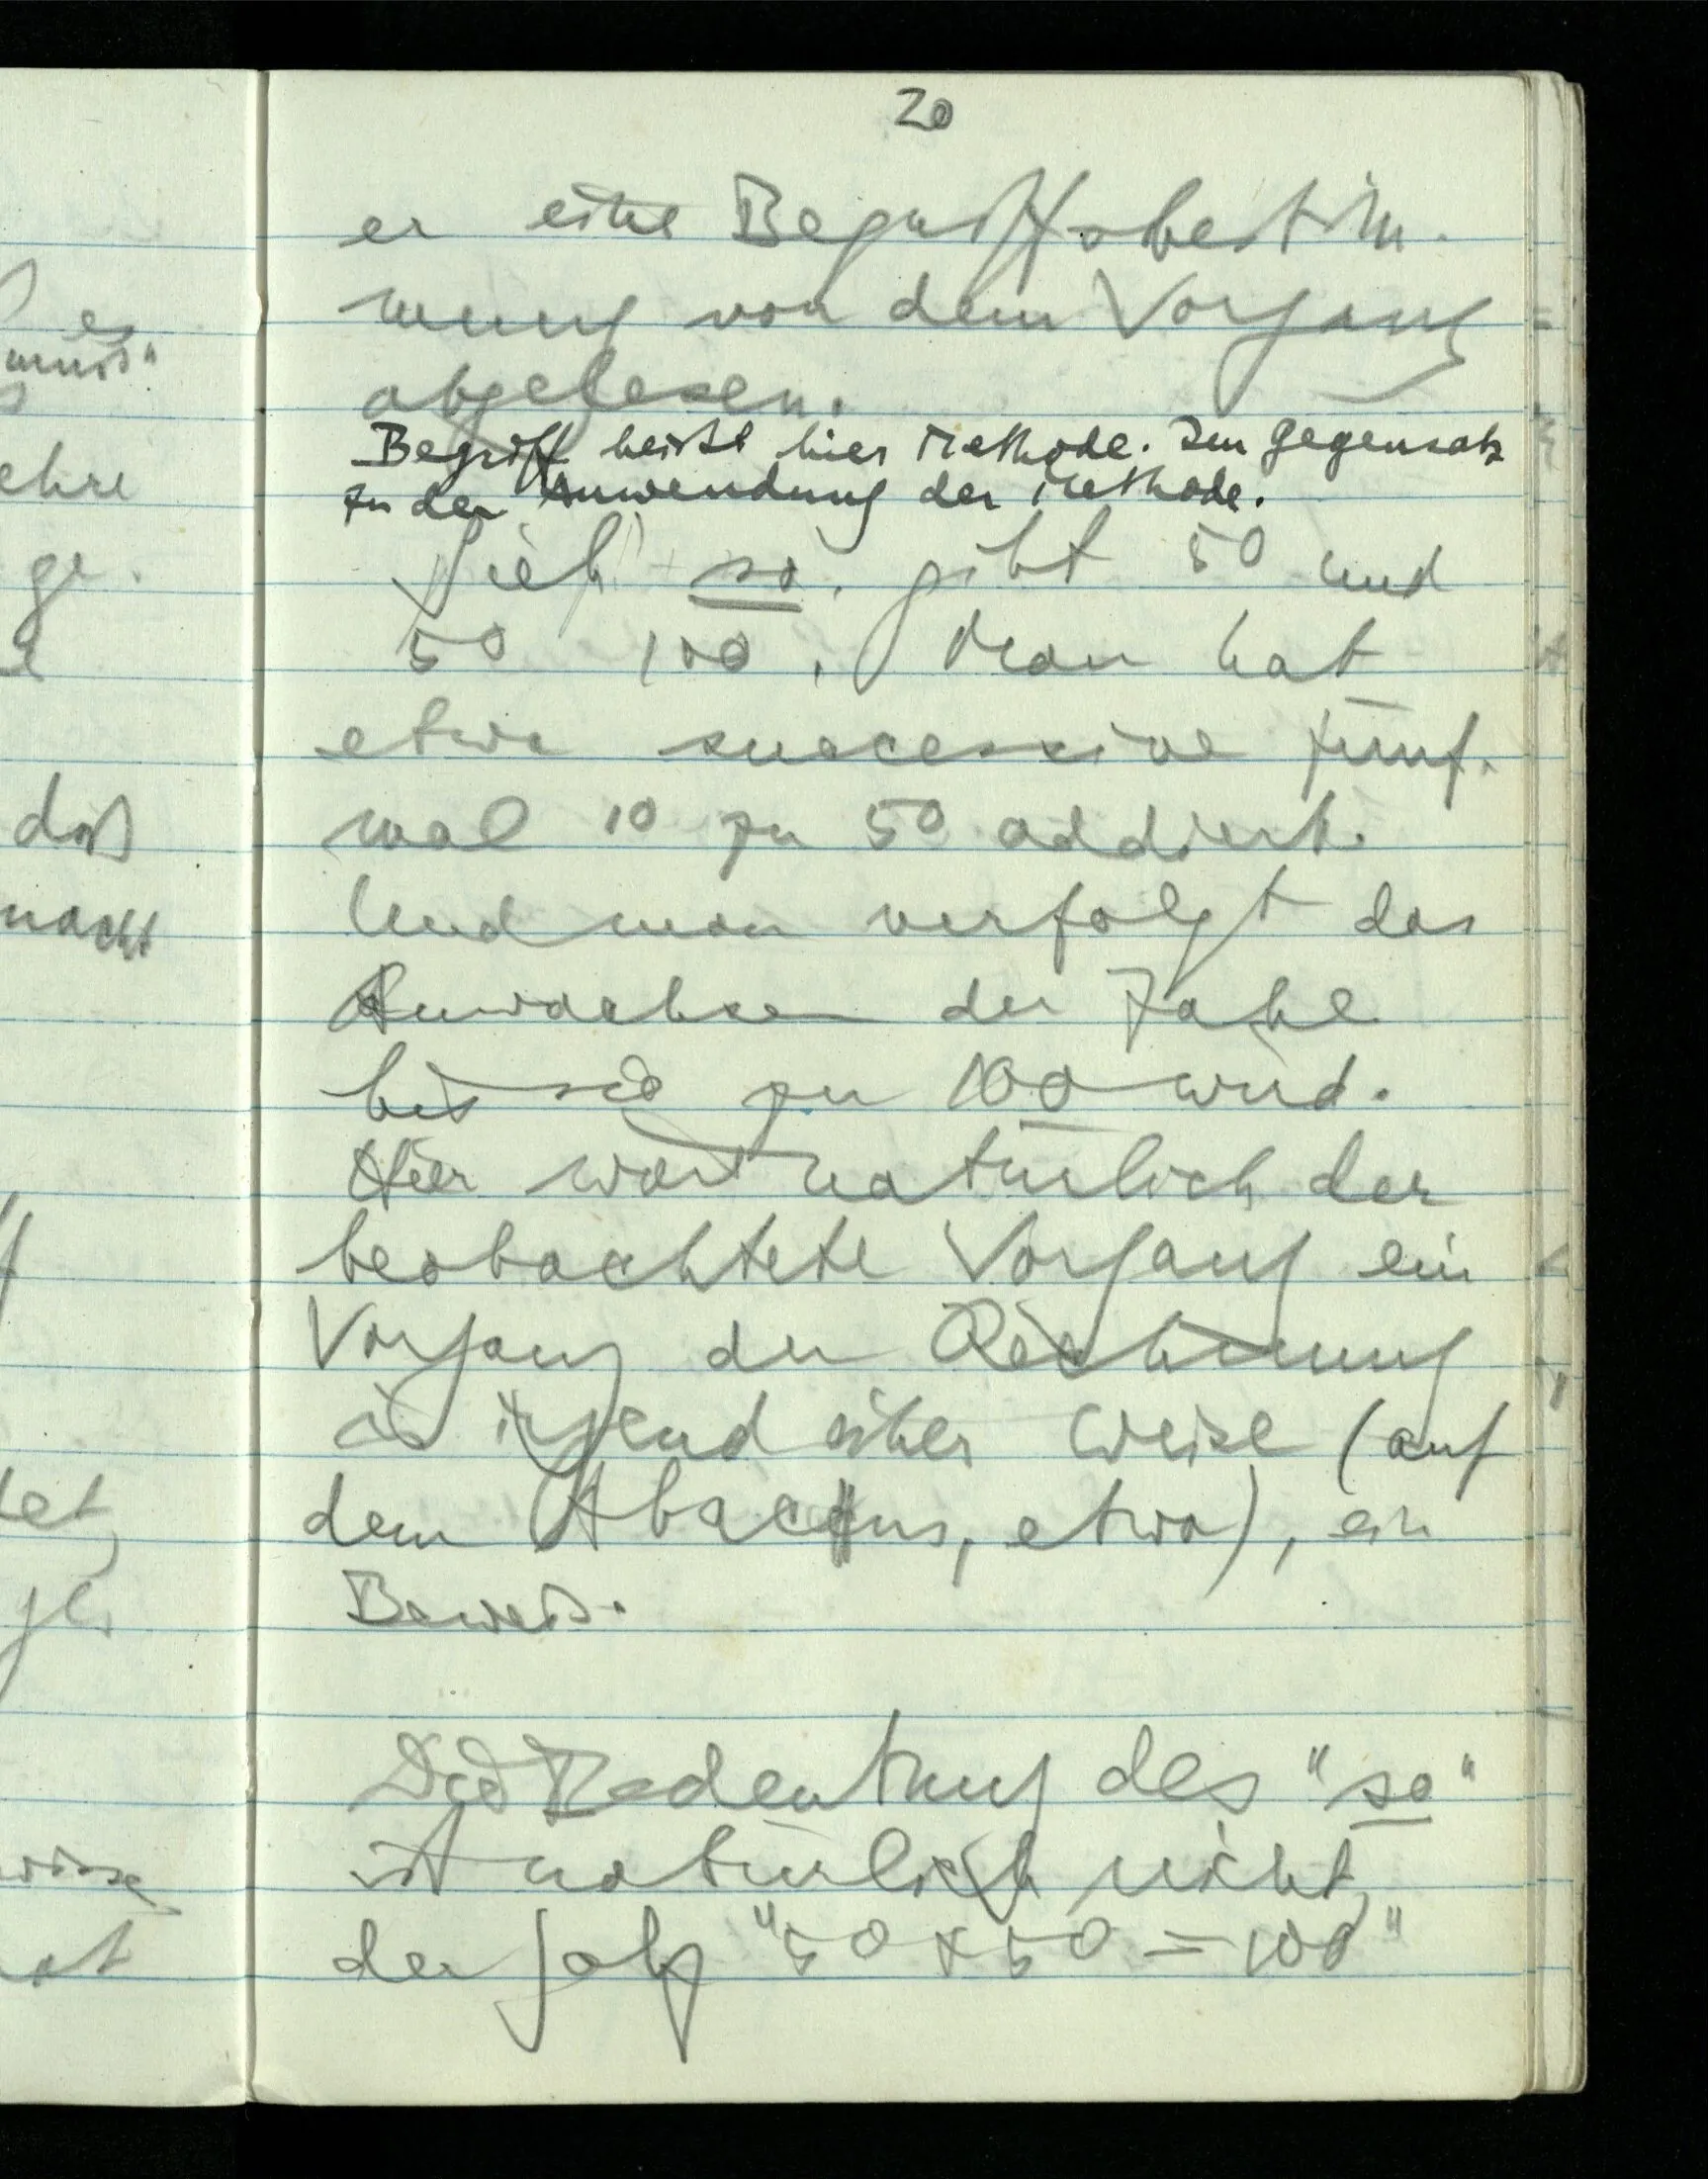 20
er eine Begriffsbestim-
mung von dem Vorgang
abgelesen.
Begriff heißt hier Methode. Im Gegensatz
zu der Anwendung der Methode.
Sieh so, gibt 50 und
50 100. Man hat
etwa successive fünf-
mal 10 zu 50 addiert.
Und man verfolgt das
Anwachsen der Zahl
bis sie zu 100 wird.
Hier war natürlich der
beobachtete Vorgang ein
Vorgang der Rechnung
in irgend einer Weise (auf
dem Abacus, etwa), ein
Beweis.
Die Bedeutung des "so"
ist natürlich nicht,
der Satz "50 + 50 = 100"
es
muß"
ehre
ge-
daß
macht
tet,